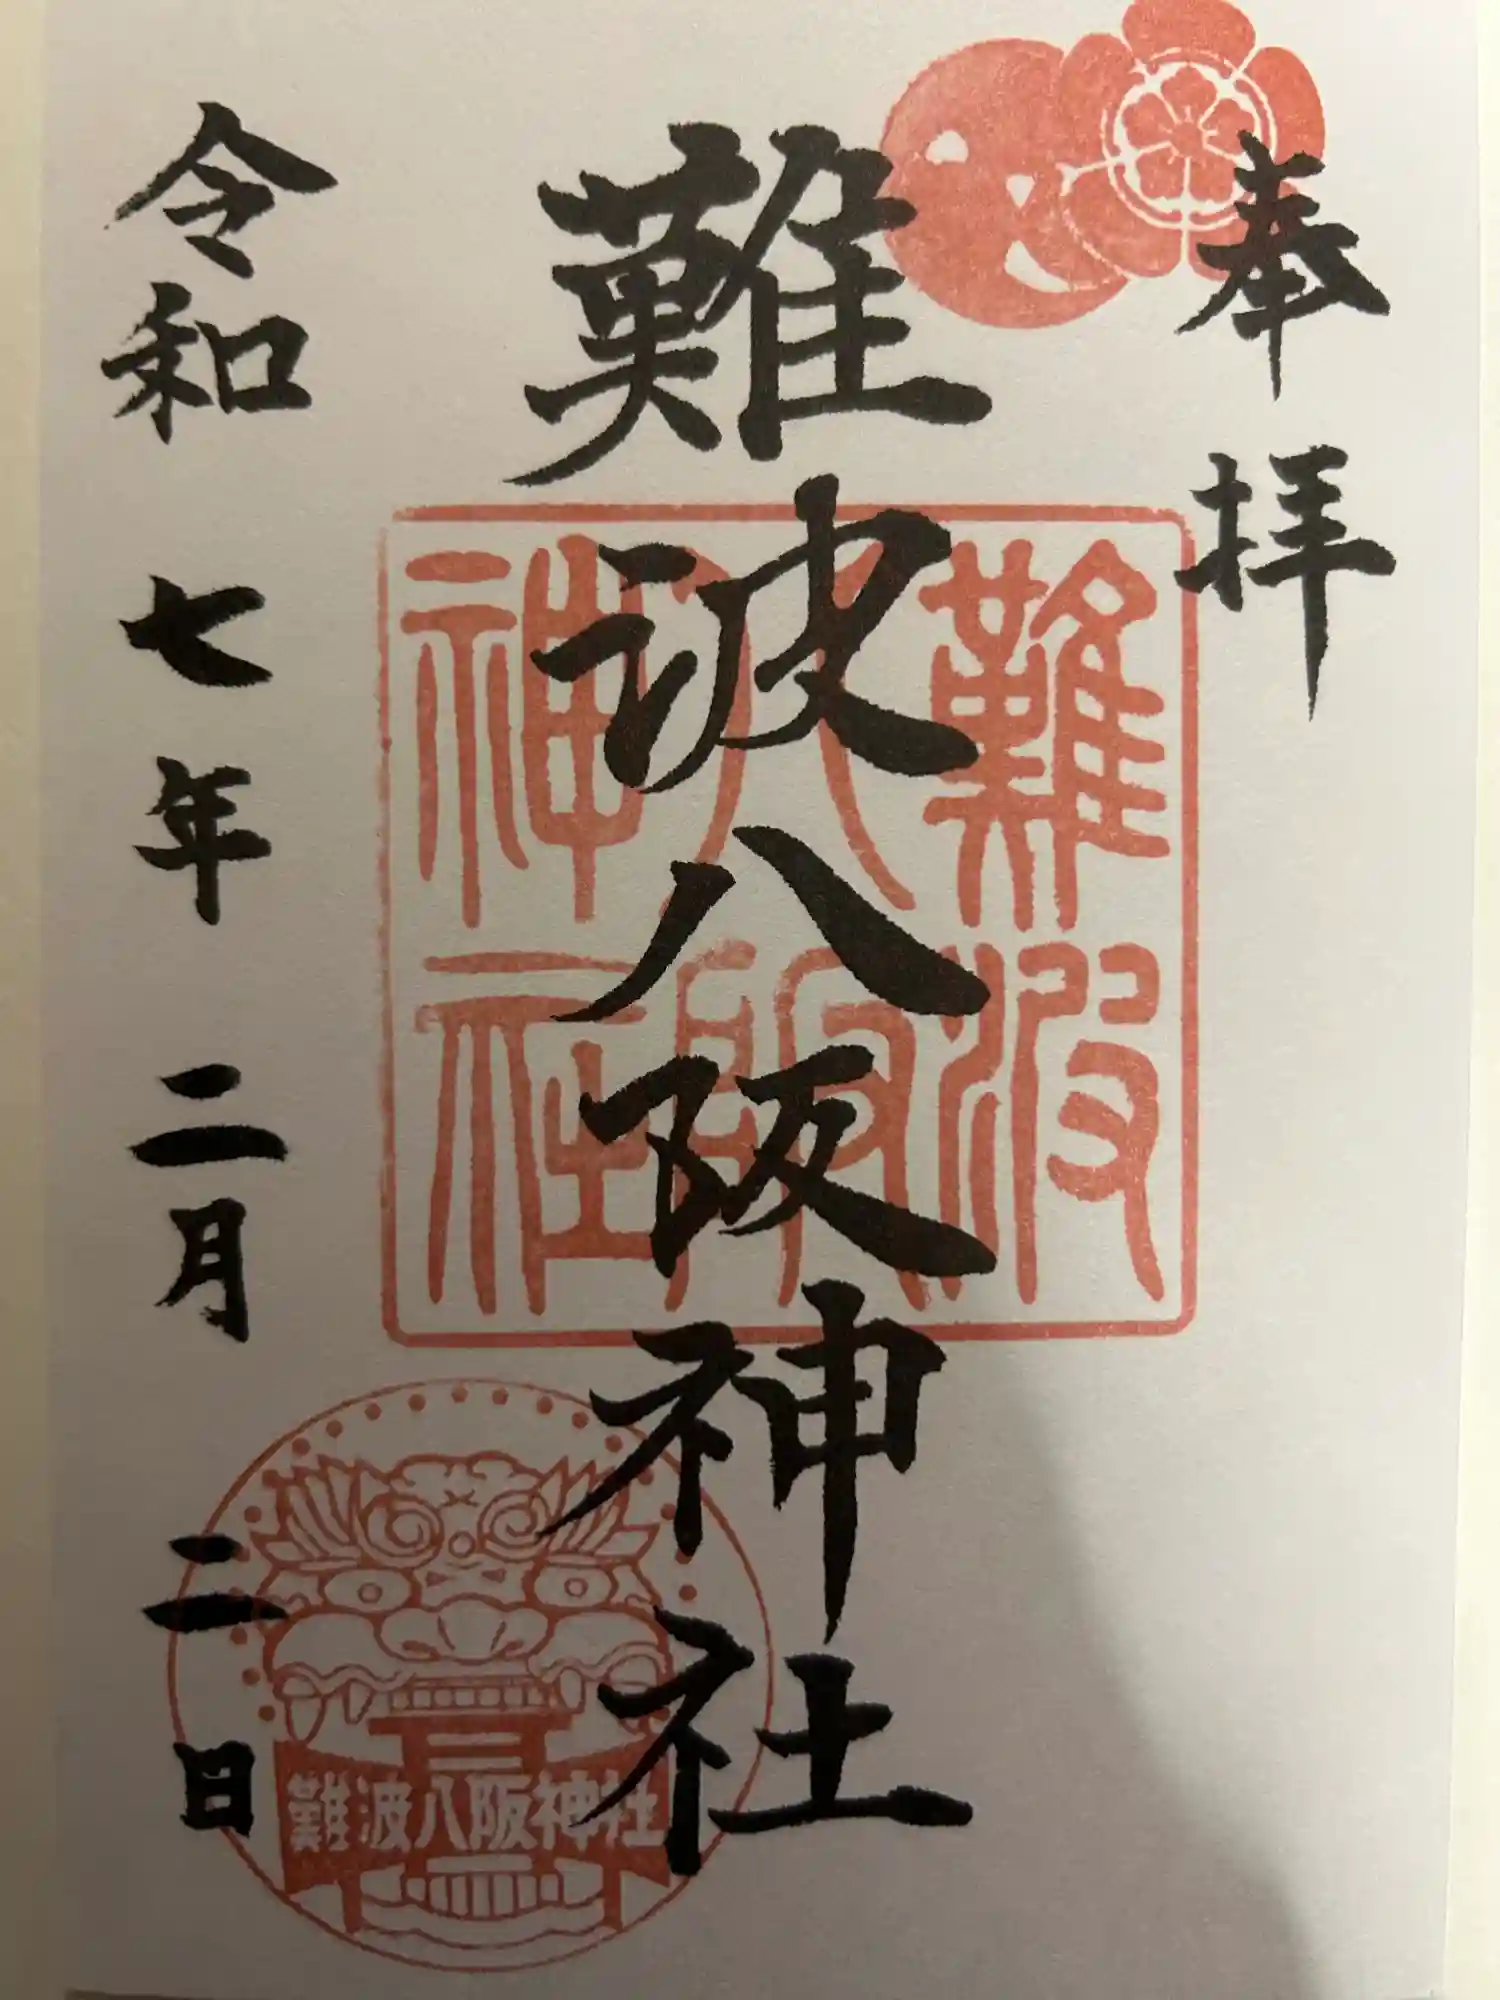 奉拝
難波八阪神社
令和七年二月二日
難波八阪神社
難波八阪神社